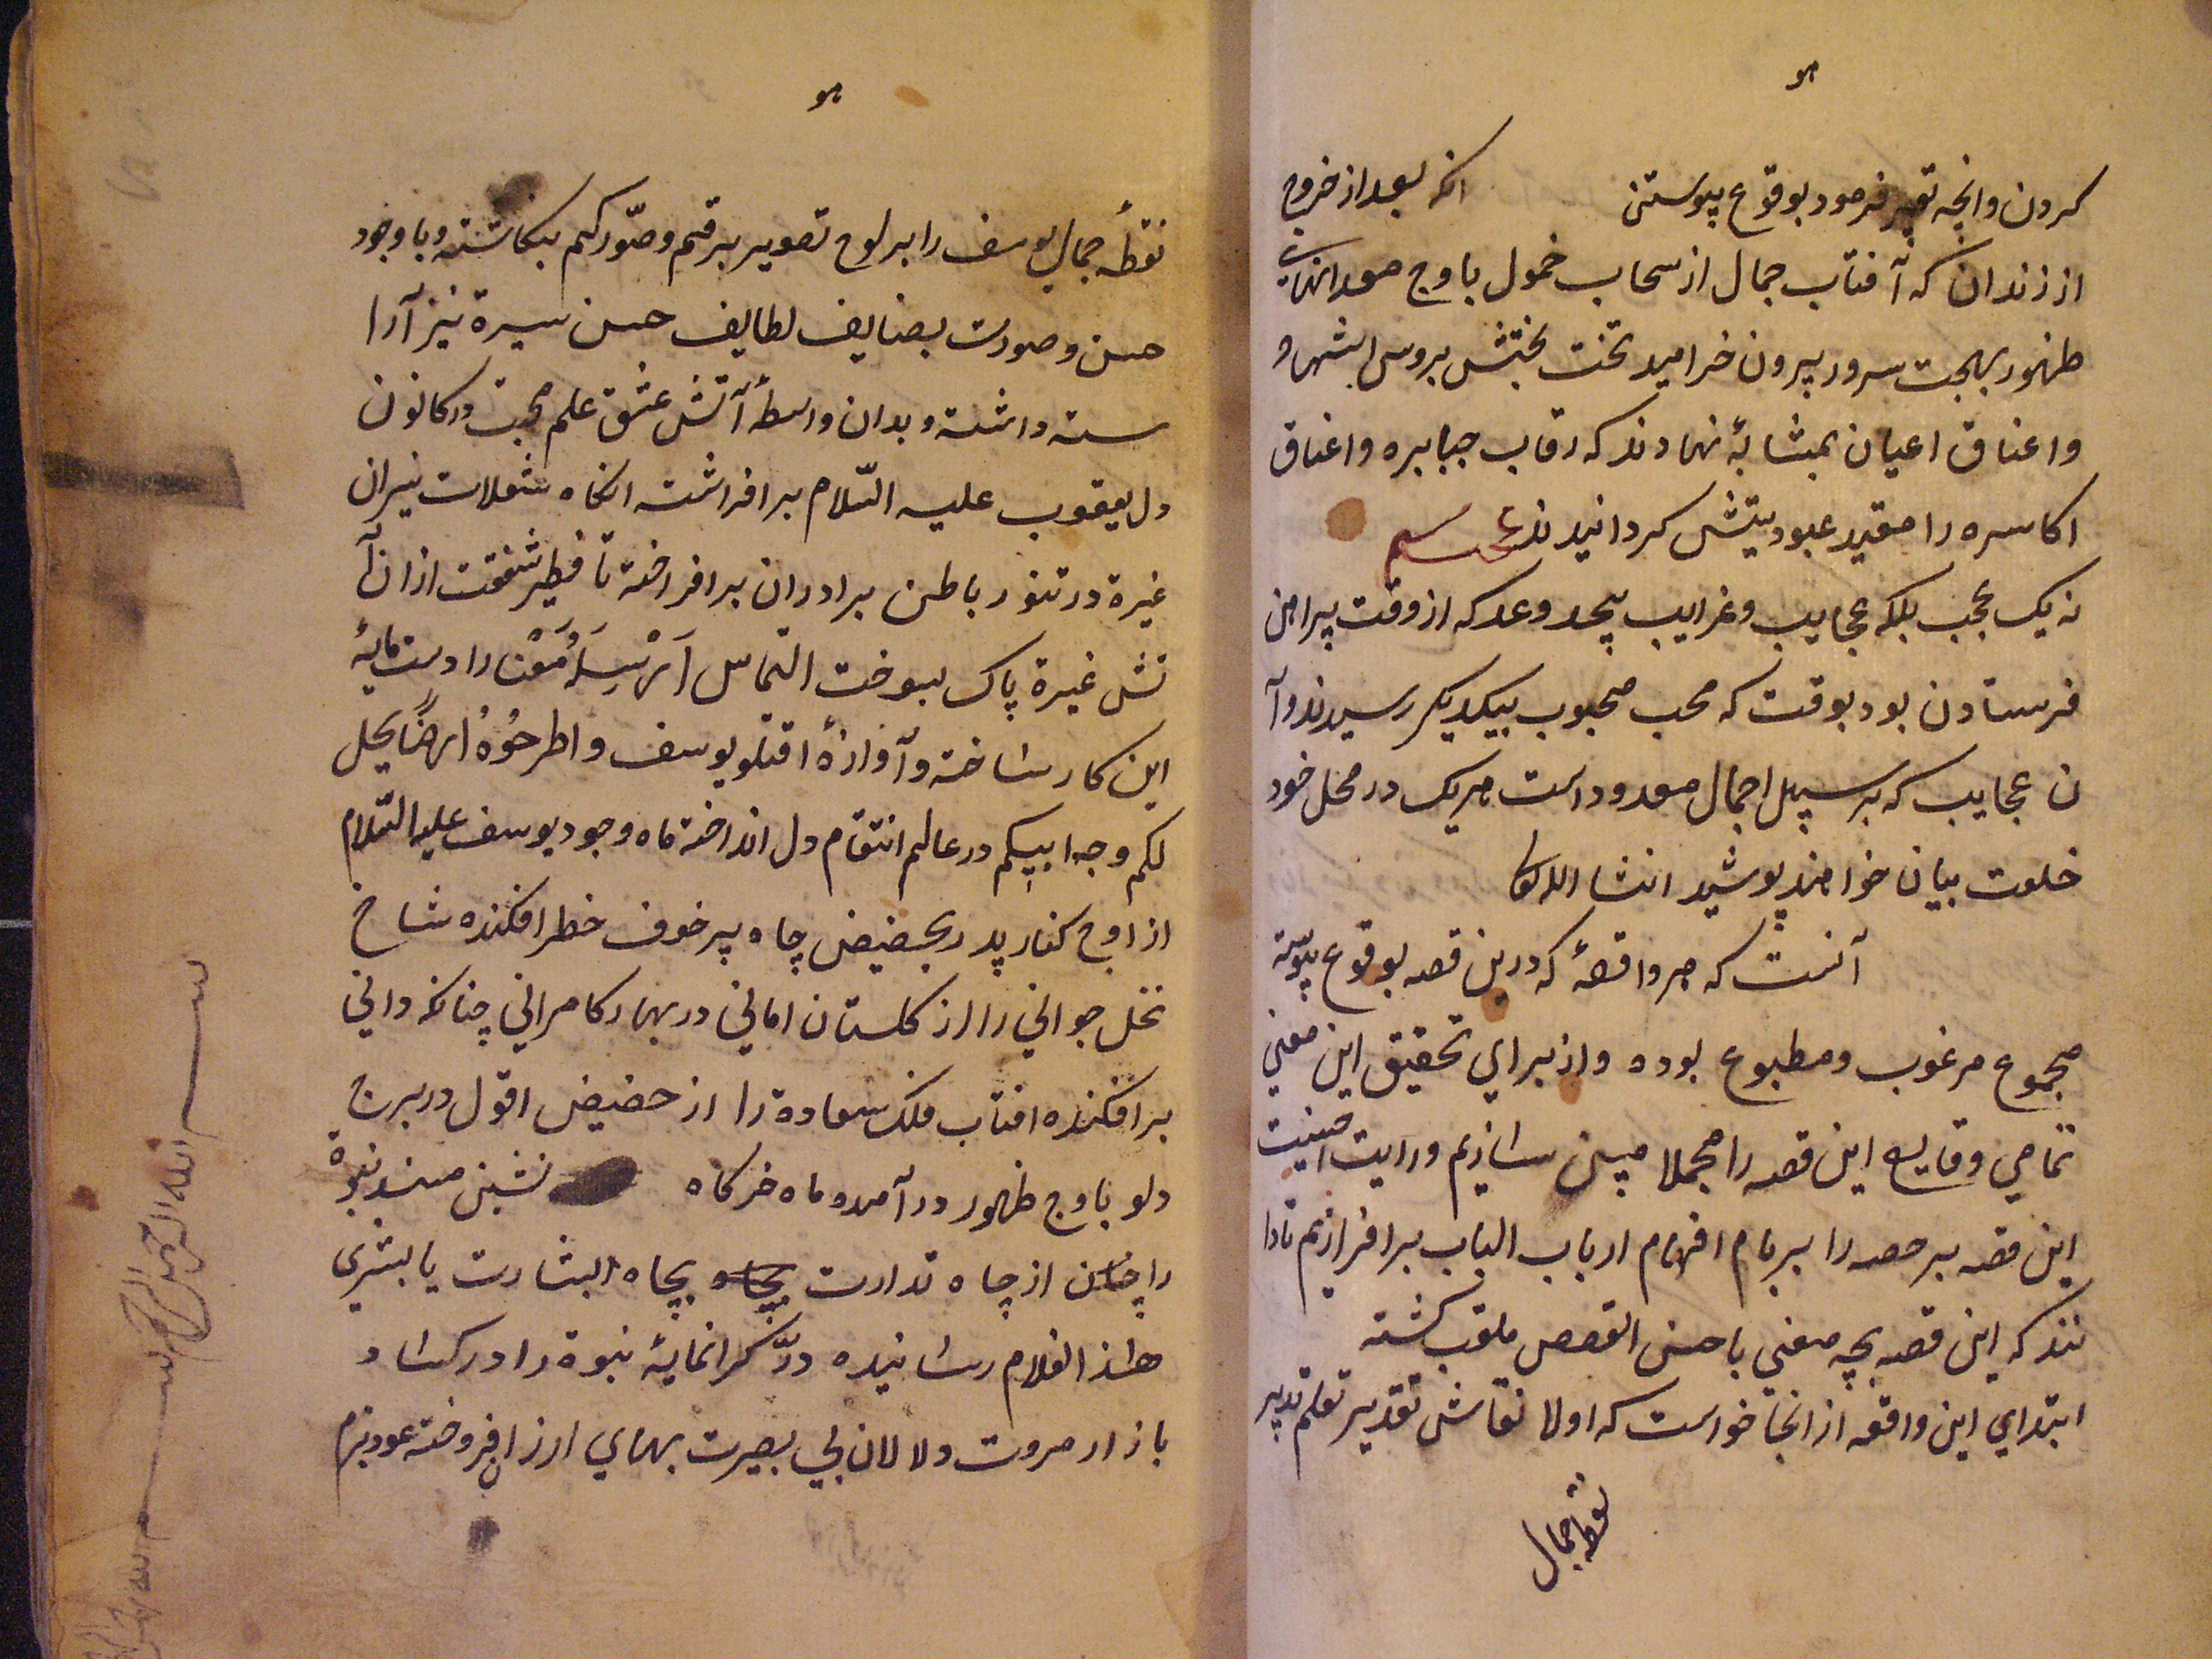 هو
کردن وانچه تعبیر فرمود بوقوع پیوستن انکه بعد از خروج
از زندان که آفتاب جمال از سحاب خمول باوج
ظهور بهجت سرور بیرون خرامید تخت بختش بروس اشهاد
واعناق اعیان بمثابهٔ نهادند که رقاب جبابره واعناق
اکاسره را مقید عبودیتش کردانیدند
نه یک عجب بلکه عجایب وغرایب بیحد وعد که از وقت پیراهن
فرستادن بود بوقت که محب محبوب بیکدیکر رسیدند وآ
ن عجایب که بر سبیل اجمال معدود است هریک در محل خود
خلعت بیان خواهند پوشید انشا الله تعالی
آنست که هر واقعهٔ که درین قصه بوقوع پیوسته
مجموع مرغوب ومطبوع بوده واز برای تحقیق این معنی
تمامی وقایع این قصه را مجملا مبین سازیم ورایت
این قصه بر حصه را بر بام افهام ارباب الباب برافرازیم تادا
نند که این قصه بچه معنی باحسن القصص ملقب کشته
ابتدای این واقعه از انجا خواست که اولا نقاش تقدیر بقلم تدبیر
نقطهٔ جمال
هو
نقطهٔ جمال یوسف را بر لوح تصویر برقم وصوّرکم بنکاشته وبا وجود
حسن وصورت بصنایف لطایف حسن سیرة نیز آرا
سته داشته وبدان واسطهٔ آتش عشق علم محبت در کانون
دل یعقوب علیه السّلام برافراشت انکاه شعلات نیران
غیرة در تنور باطن برادران برافراخته تا فطیر شفقت از ان آ
تش غیرة پاک بسوخت التماس اَرْسِلهُ مَعَنا را دست مایهٔ
این کار ساخته وآوازهٔ اقتلو یوسف واطرحُوهُ ارضًا یخل
لکم وجه ابیکم در عالم انتقام دل انداخته ماه وجود یوسف علیه السّلام
از اوج کنار پدر بحضیض چاه پر خوف خطر افکنده شاخ
نخل جوانی را از کلستان امانی در بهار کامرانی چنانکه دانی
برافکنده افتاب فلک سعادة را از حضیض افول در برج
دلو باوج ظهور در آمده ماه خرکاه نشین مسند نبوة
را از چاه بچاه البشارت یا بشری
هذا الغلام رسانیده درّ کرانمایهٔ نبوة را در کساد
بازار مروت دلالان بی بصیرت بهای ارزان فروخته عود بزم